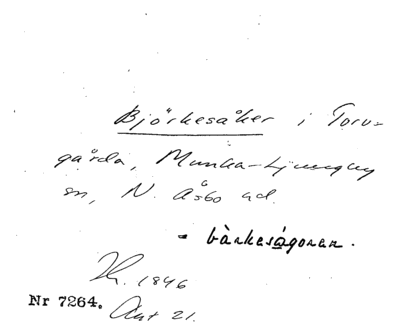 Björkesåker i Toru-
gårda, Munka-Ljungby
sn, N. Åsbo hd.
- bàrkesågoren.
Th. 1846
Nr 7264. Akt 21.